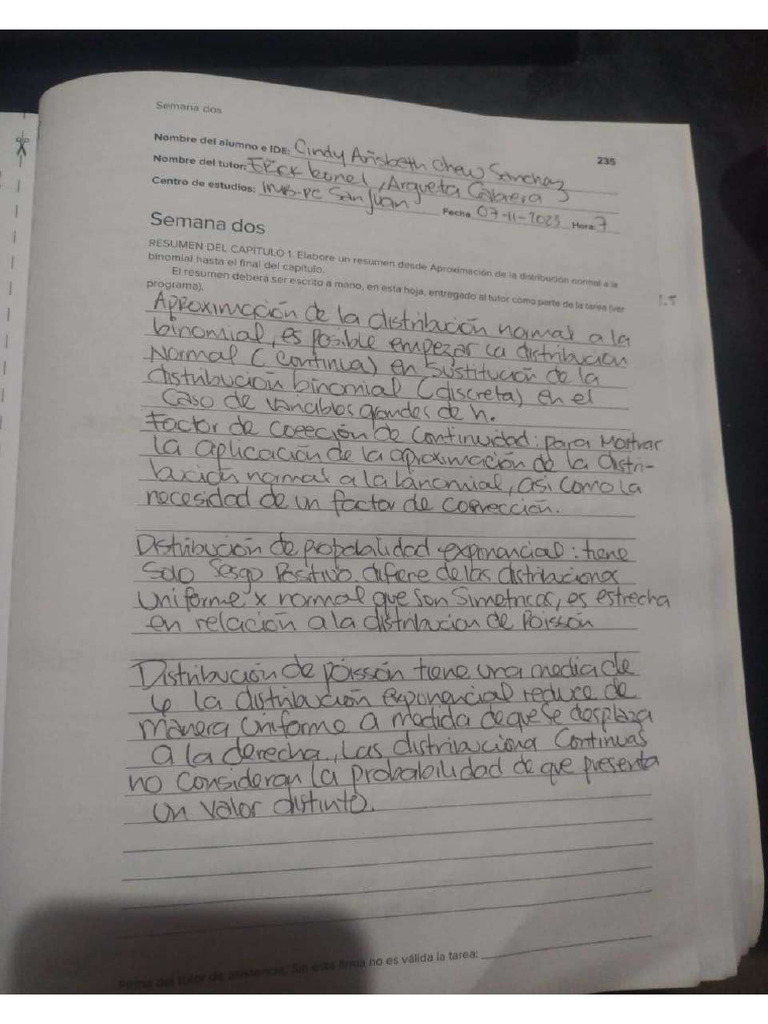 Semana dos
235
Nombre del alumno e IDE: Cindy Arisbeth Chew Sanchez
Nombre del tutor: Erick Leonel, Argueta Cabrera
Centro de estudios: San Juan Fecha 07-11-2023 Hora: 7
Semana dos
RESUMEN DEL CAPÍTULO 1. Elabore un resumen desde Aproximación de la distribución normal a la
binomial hasta el final del capítulo.
El resumen deberá ser escrito a mano, en esta hoja, entregado al tutor como parte de la tarea (ver
programa).
1.5
Aproximación de la distribución normal a la
binomial, es posible empezar la distribucion
Normal (Continua) en Sustitución de la
distribución binomial (discreta) en el
Caso de variables grandes de n.
Factor de correción de Continuidad: para Mostrar
la aplicación de la aproximación de la distri-
bución normal a la binomial, asi como la
necesidad de un factor de corrección.
Distribución de probabilidad exponencial: tiene
Solo Sesgo Positivo. difiere de las distribuciones
Uniforme x normal que son Simetricas, es estrecha
en relación a la distribucion de Poissón
Distribución de poissón tiene una media de
4 la distribución exponencial reduce de
Manera Uniforme a medida de que se desplaza
a la derecha, Las distribuciona Continuas
no Consideran la probabilidad de que presenta
Un valor distinto.
Firma del tutor de asistencia. Sin esta firma no es válida la tarea: